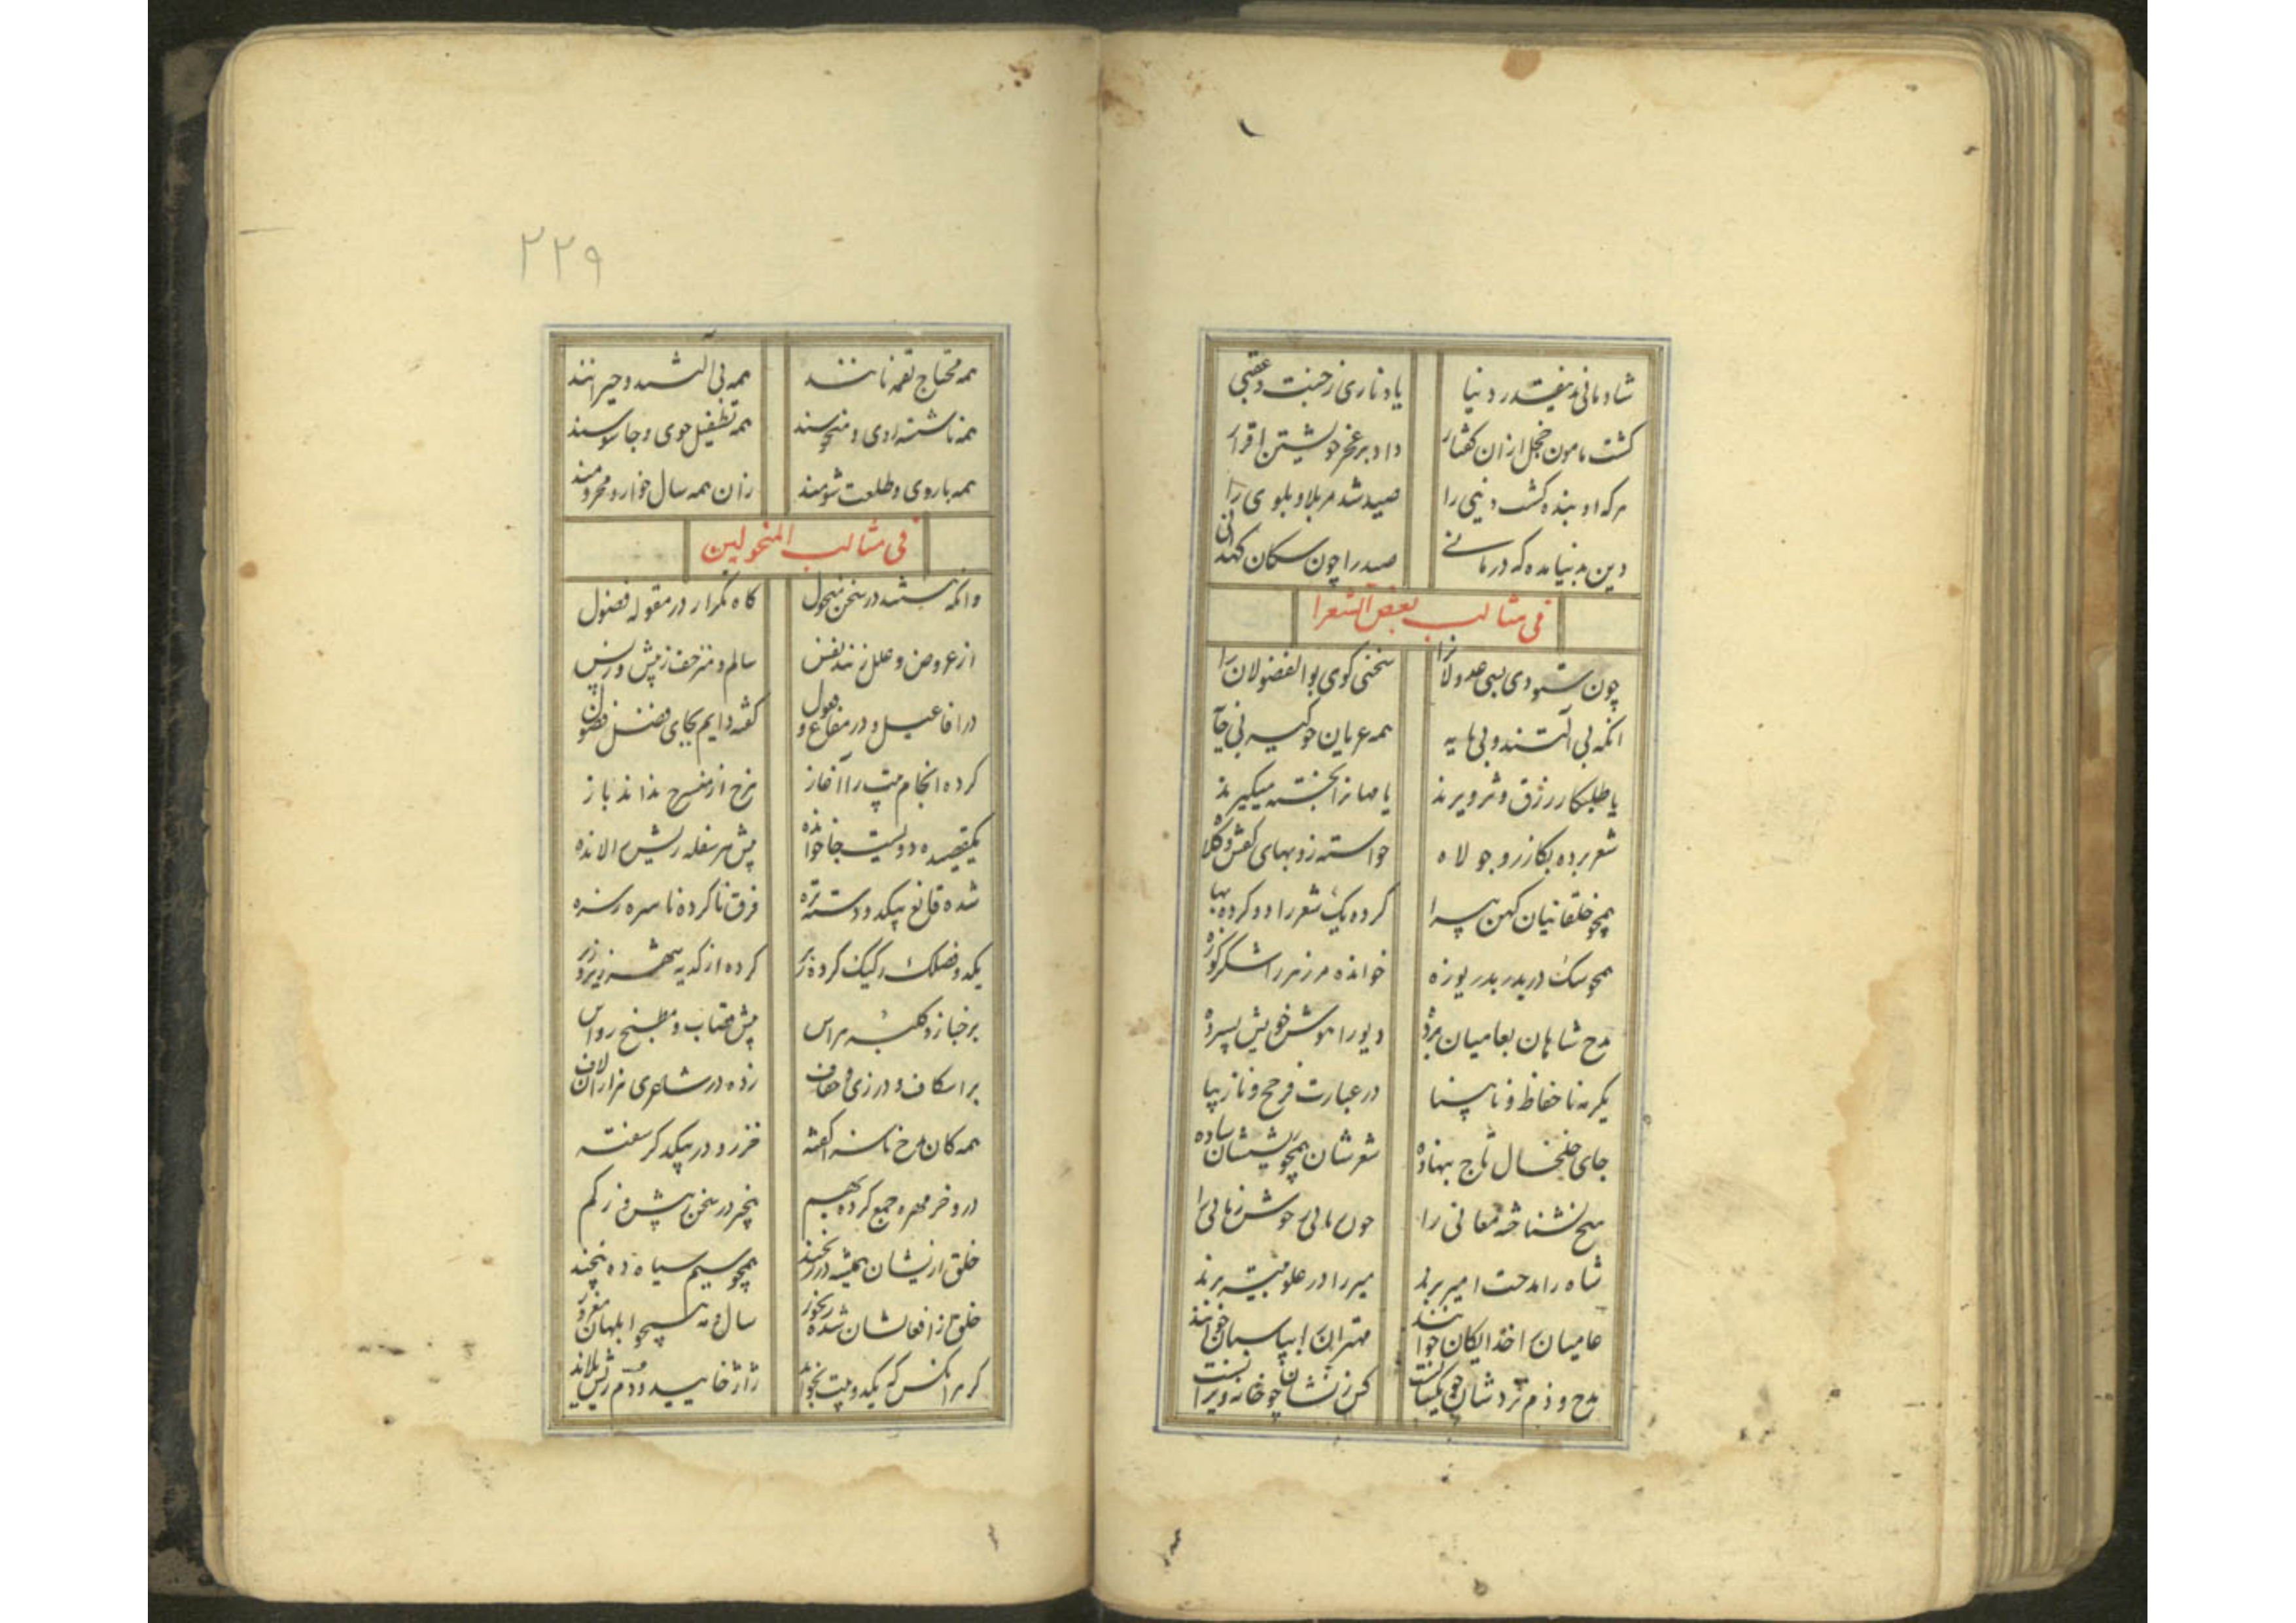 شادمانی بدینقدر دنیا یاد ناری ز جنت و عقبی
گشت مامون خجل ازان گفتار داد بر عجز خویشتن اقرار
هرکه او بنده گشت دنیی را صید شد مر بلا و بلوی را
دین بدنیا مده که درمانی صدرا چون سکان کهدانی
فی مثالب بعض الشعرا
چون ستودی بسی عدولانرا سخنی گوی بوالفضولان را
انکه بی آلتند و بی مایه همه عریان چو سیر بی
یا طلبکار رزق و تزویرند یا
شعر برده بگازر و جولاه خواسته زو بهای کفش و کلاه
همچو خلقانیان کهن پیرا کرده یک شعر را دو کرده بها
همچو سگ دربدر بدریوزه خوانده مر زهر را شکر کوزه
مدح شاهان بعامیان برده دیو را هوش خویش بسپرده
یکرمه ناحفاظ و نابینا در عبارت فرخج و نازیبا
جای خلخال تاج بنهاده شعرشان همچو ریششان ساده
هیچ نشناخته معانی را
شاه را مدحت امیر برند میر را در علو میتر برند
عامیان را خدایگان خوانند مهتران را بپاسبان خوانند
مدح و ذم نزدشان چو یکسانست کس زنشان چو خانه ویرانست
۲۲۹
همه محتاج لقمه نانند همه بی آلتند و حیرانند
همه ناشسته روی و منحوسند همه تطفیل جوی و جاسوسند
همه با روی و طلعت شومند زان همه سال خوار و محرومند
فی مثالب المنحولین
وانکه باشند در سخن منحول گاه تکرار در مقوله فضول
از عروض و علل زنند نفس سالم و منزحف ز پیش و ز پس
در افاعیل و در مفاعیل و فعول گفته دایم بجای فضل فضول
کرده انجام بیت را آغاز نرخ از منسرح نداند باز
یکقصیده دویست جا خوانده پیش هر سفله ریش را لانده
شده قانع بیکدو دسته تره فرق ناکرده ناسره ز سره
یکدو فصلک رکیک کرده ز بر کرده از کدیه شهر زیر و زبر
بر خباز و کلبه هراس پیش قصاب و مطبخ رواس
بر اسکاف و درزی و خفاف زده در شاعری هزاران لاف
همه کان مرخ ناسزا گفته خزر و در بیکدگر سفته
در و خر مهره جمع کرده بهم بیخبر در سخن ز بیش و ز کم
خلق ازیشان همیشه در رنجند همچو سیم سیاه ده پنجند
خلق از افعالشان شده رنجور سال و مه همچو ابلهان مغرور
گر هر انکس که یکدو بیت بخواند ژاژ خایید و دم ریش بلاند